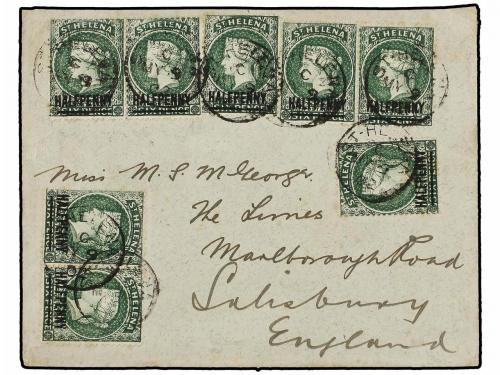 ST HELENA ST HELENA ST HELENA ST HELENA ST HELENA
HALFPENNY HALFPENNY HALFPENNY HALFPENNY HALFPENNY
ST HELENA
HALFPENNY
Miss M. S. McGeorge
The Limes
Marlborough Road
Salisbury
England
ST HELENA
HALFPENNY
ST HELENA
HALFPENNY